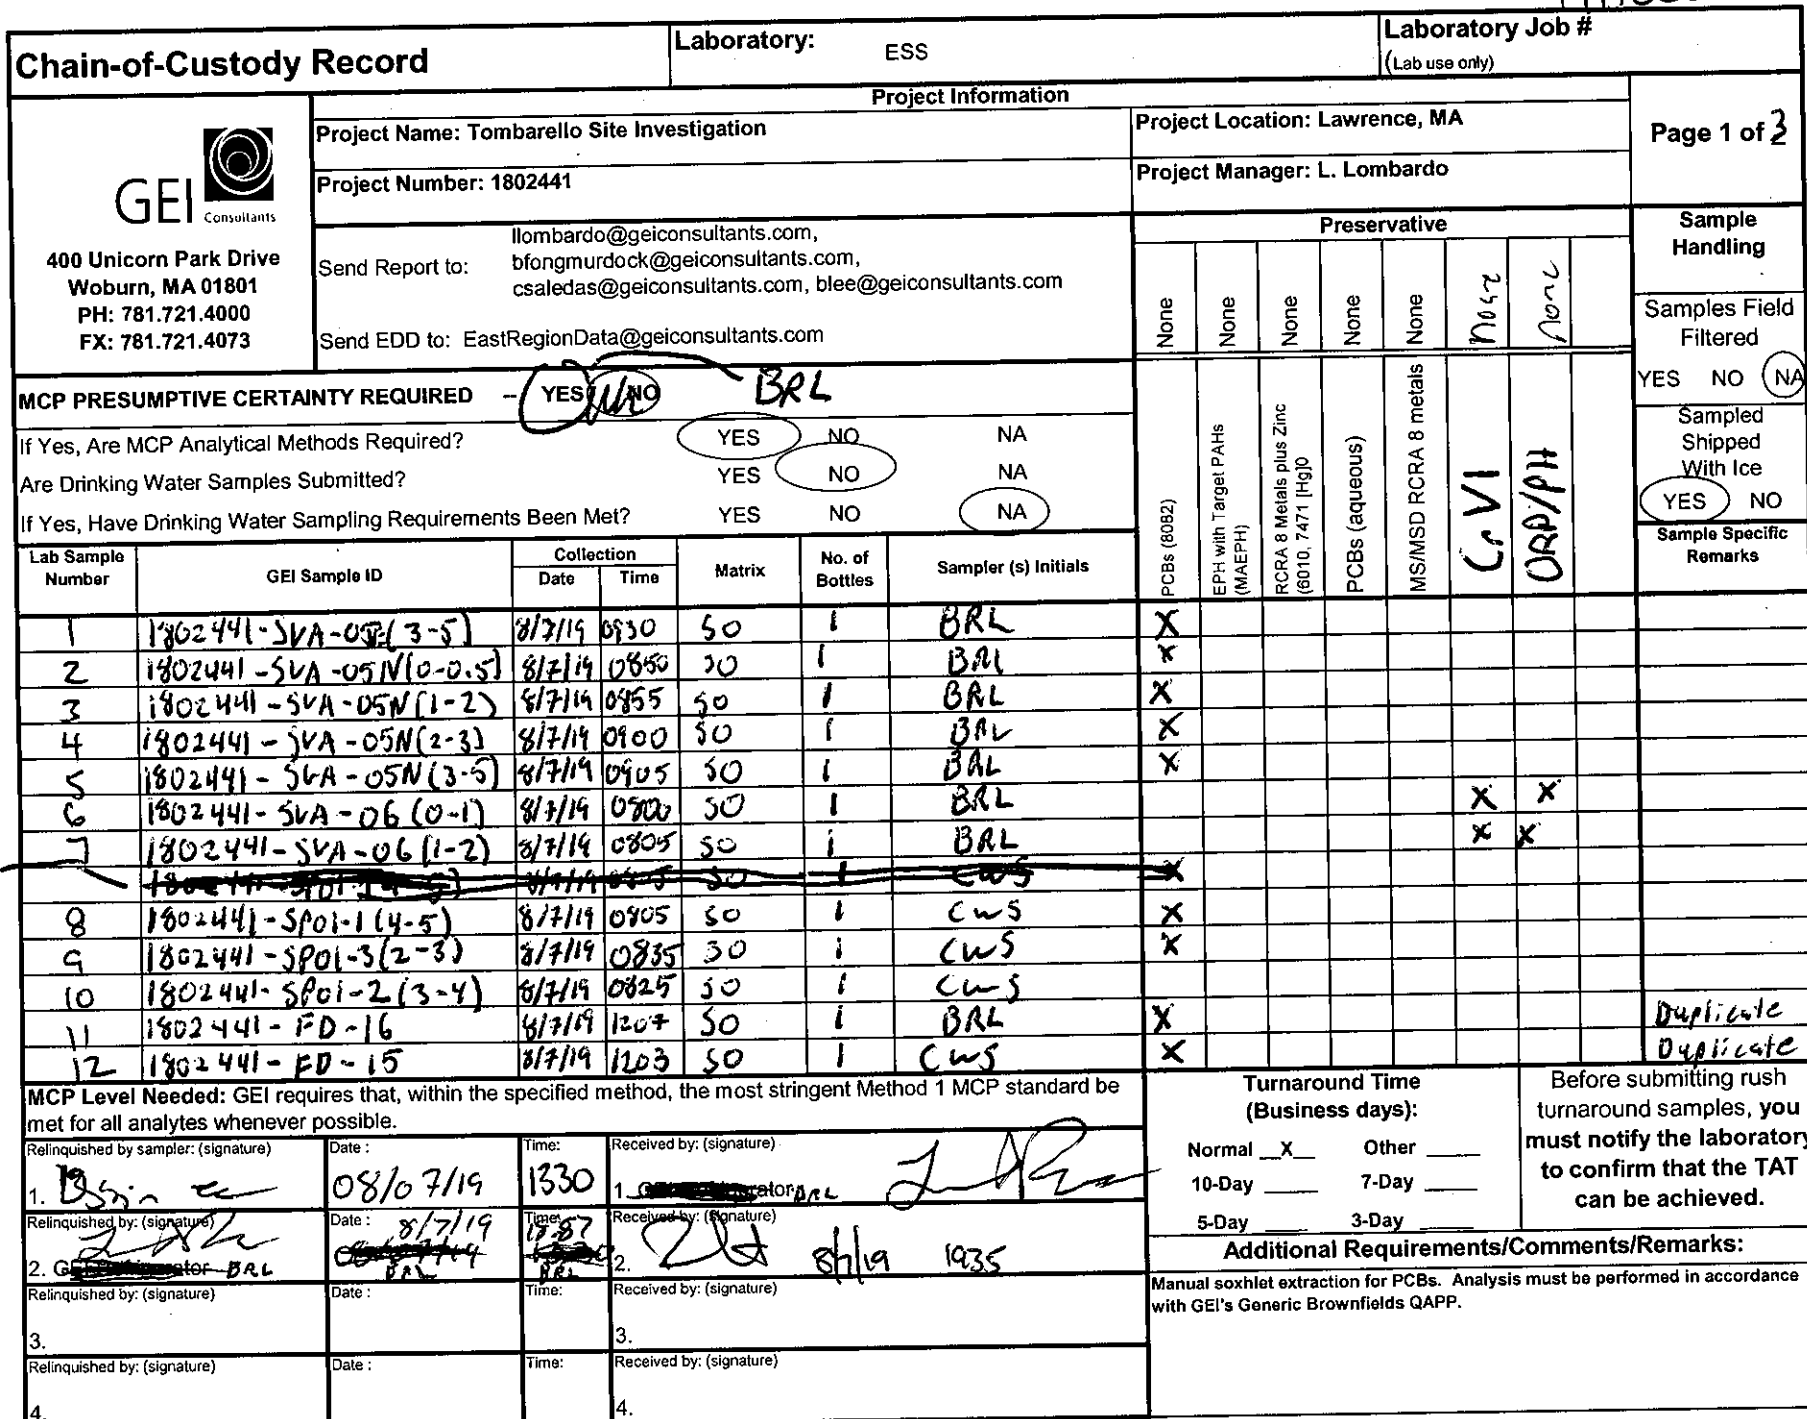 Chain-of-Custody Record
Laboratory: ESS
Laboratory Job #
(Lab use only)
Project Information
GEI Consultants
400 Unicorn Park Drive
Woburn, MA 01801
PH: 781.721.4000
FX: 781.721.4073
Project Name: Tombarello Site Investigation
Project Location: Lawrence, MA
Page 1 of 3
Project Number: 1802441
Project Manager: L. Lombardo
Send Report to:
llombardo@geiconsultants.com,
bfongmurdock@geiconsultants.com,
csaledas@geiconsultants.com, blee@geiconsultants.com
Send EDD to: EastRegionData@geiconsultants.com
Preservative
None None None None None None None
Sample Handling
Samples Field Filtered
YES NO NA
Sampled Shipped With Ice
YES NO
Sample Specific Remarks
MCP PRESUMPTIVE CERTAINTY REQUIRED -- YES NO BRL
If Yes, Are MCP Analytical Methods Required? YES NO NA
Are Drinking Water Samples Submitted? YES NO NA
If Yes, Have Drinking Water Sampling Requirements Been Met? YES NO NA
PCBs (8082)
EPH with Target PAHs (MAEPH)
RCRA 8 Metals plus Zinc (6010, 7471 [Hg]0
PCBs (aqueous)
MS/MSD RCRA 8 metals
Cr VI
ORP/pH
Lab Sample Number
GEI Sample ID
Collection
Date Time
Matrix
No. of Bottles
Sampler (s) Initials
1 1802441-SVA-05(3-5) 8/7/19 0930 SO 1 BRL X
2 1802441-SVA-05N(0-0.5) 8/7/19 0850 SO 1 BRL X
3 1802441-SVA-05N(1-2) 8/7/19 0855 SO 1 BRL X
4 1802441-SVA-05N(2-3) 8/7/19 0900 SO 1 BRL X
5 1802441-SVA-05N(3-5) 8/7/19 0905 SO 1 BRL X
6 1802441-SVA-06(0-1) 8/7/19 0800 SO 1 BRL X X
7 1802441-SVA-06(1-2) 8/7/19 0805 SO 1 BRL X X
8 1802441-SP01-1(4-5) 8/7/19 0805 SO 1 CWS X
9 1802441-SP01-3(2-3) 8/7/19 0835 SO 1 CWS X
10 1802441-SP01-2(3-4) 8/7/19 0825 SO 1 CWS
11 1802441-FD-16 8/7/19 1207 SO 1 BRL X Duplicate
12 1802441-FD-15 8/7/19 1203 SO 1 CWS X Duplicate
MCP Level Needed: GEI requires that, within the specified method, the most stringent Method 1 MCP standard be
met for all analytes whenever possible.
Relinquished by sampler: (signature) Date : Time: Received by: (signature)
1. 08/07/19 1330 1. BRL
Relinquished by: (signature) Date : 8/7/19 Time: Received by: (signature)
2. BRL BRL BRL 2. 8/7/19 1935
Relinquished by: (signature) Date : Time: Received by: (signature)
3. 3.
Relinquished by: (signature) Date : Time: Received by: (signature)
4. 4.
Turnaround Time
(Business days):
Normal __X__ Other _____
10-Day _____ 7-Day _____
5-Day _____ 3-Day _____
Before submitting rush
turnaround samples, you
must notify the laboratory
to confirm that the TAT
can be achieved.
Additional Requirements/Comments/Remarks:
Manual soxhlet extraction for PCBs. Analysis must be performed in accordance
with GEI's Generic Brownfields QAPP.